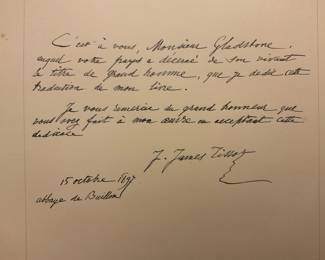 C'est à vous, Monsieur Gladstone,
auquel votre pays a décerné de son vivant
le titre de grand homme, que je dédie cette
traduction de mon livre.
Je vous remercie du grand honneur que
vous avez fait à mon œuvre en acceptant cette
dédicace
J. James Tissot
15 octobre 1897
abbaye de Buillon